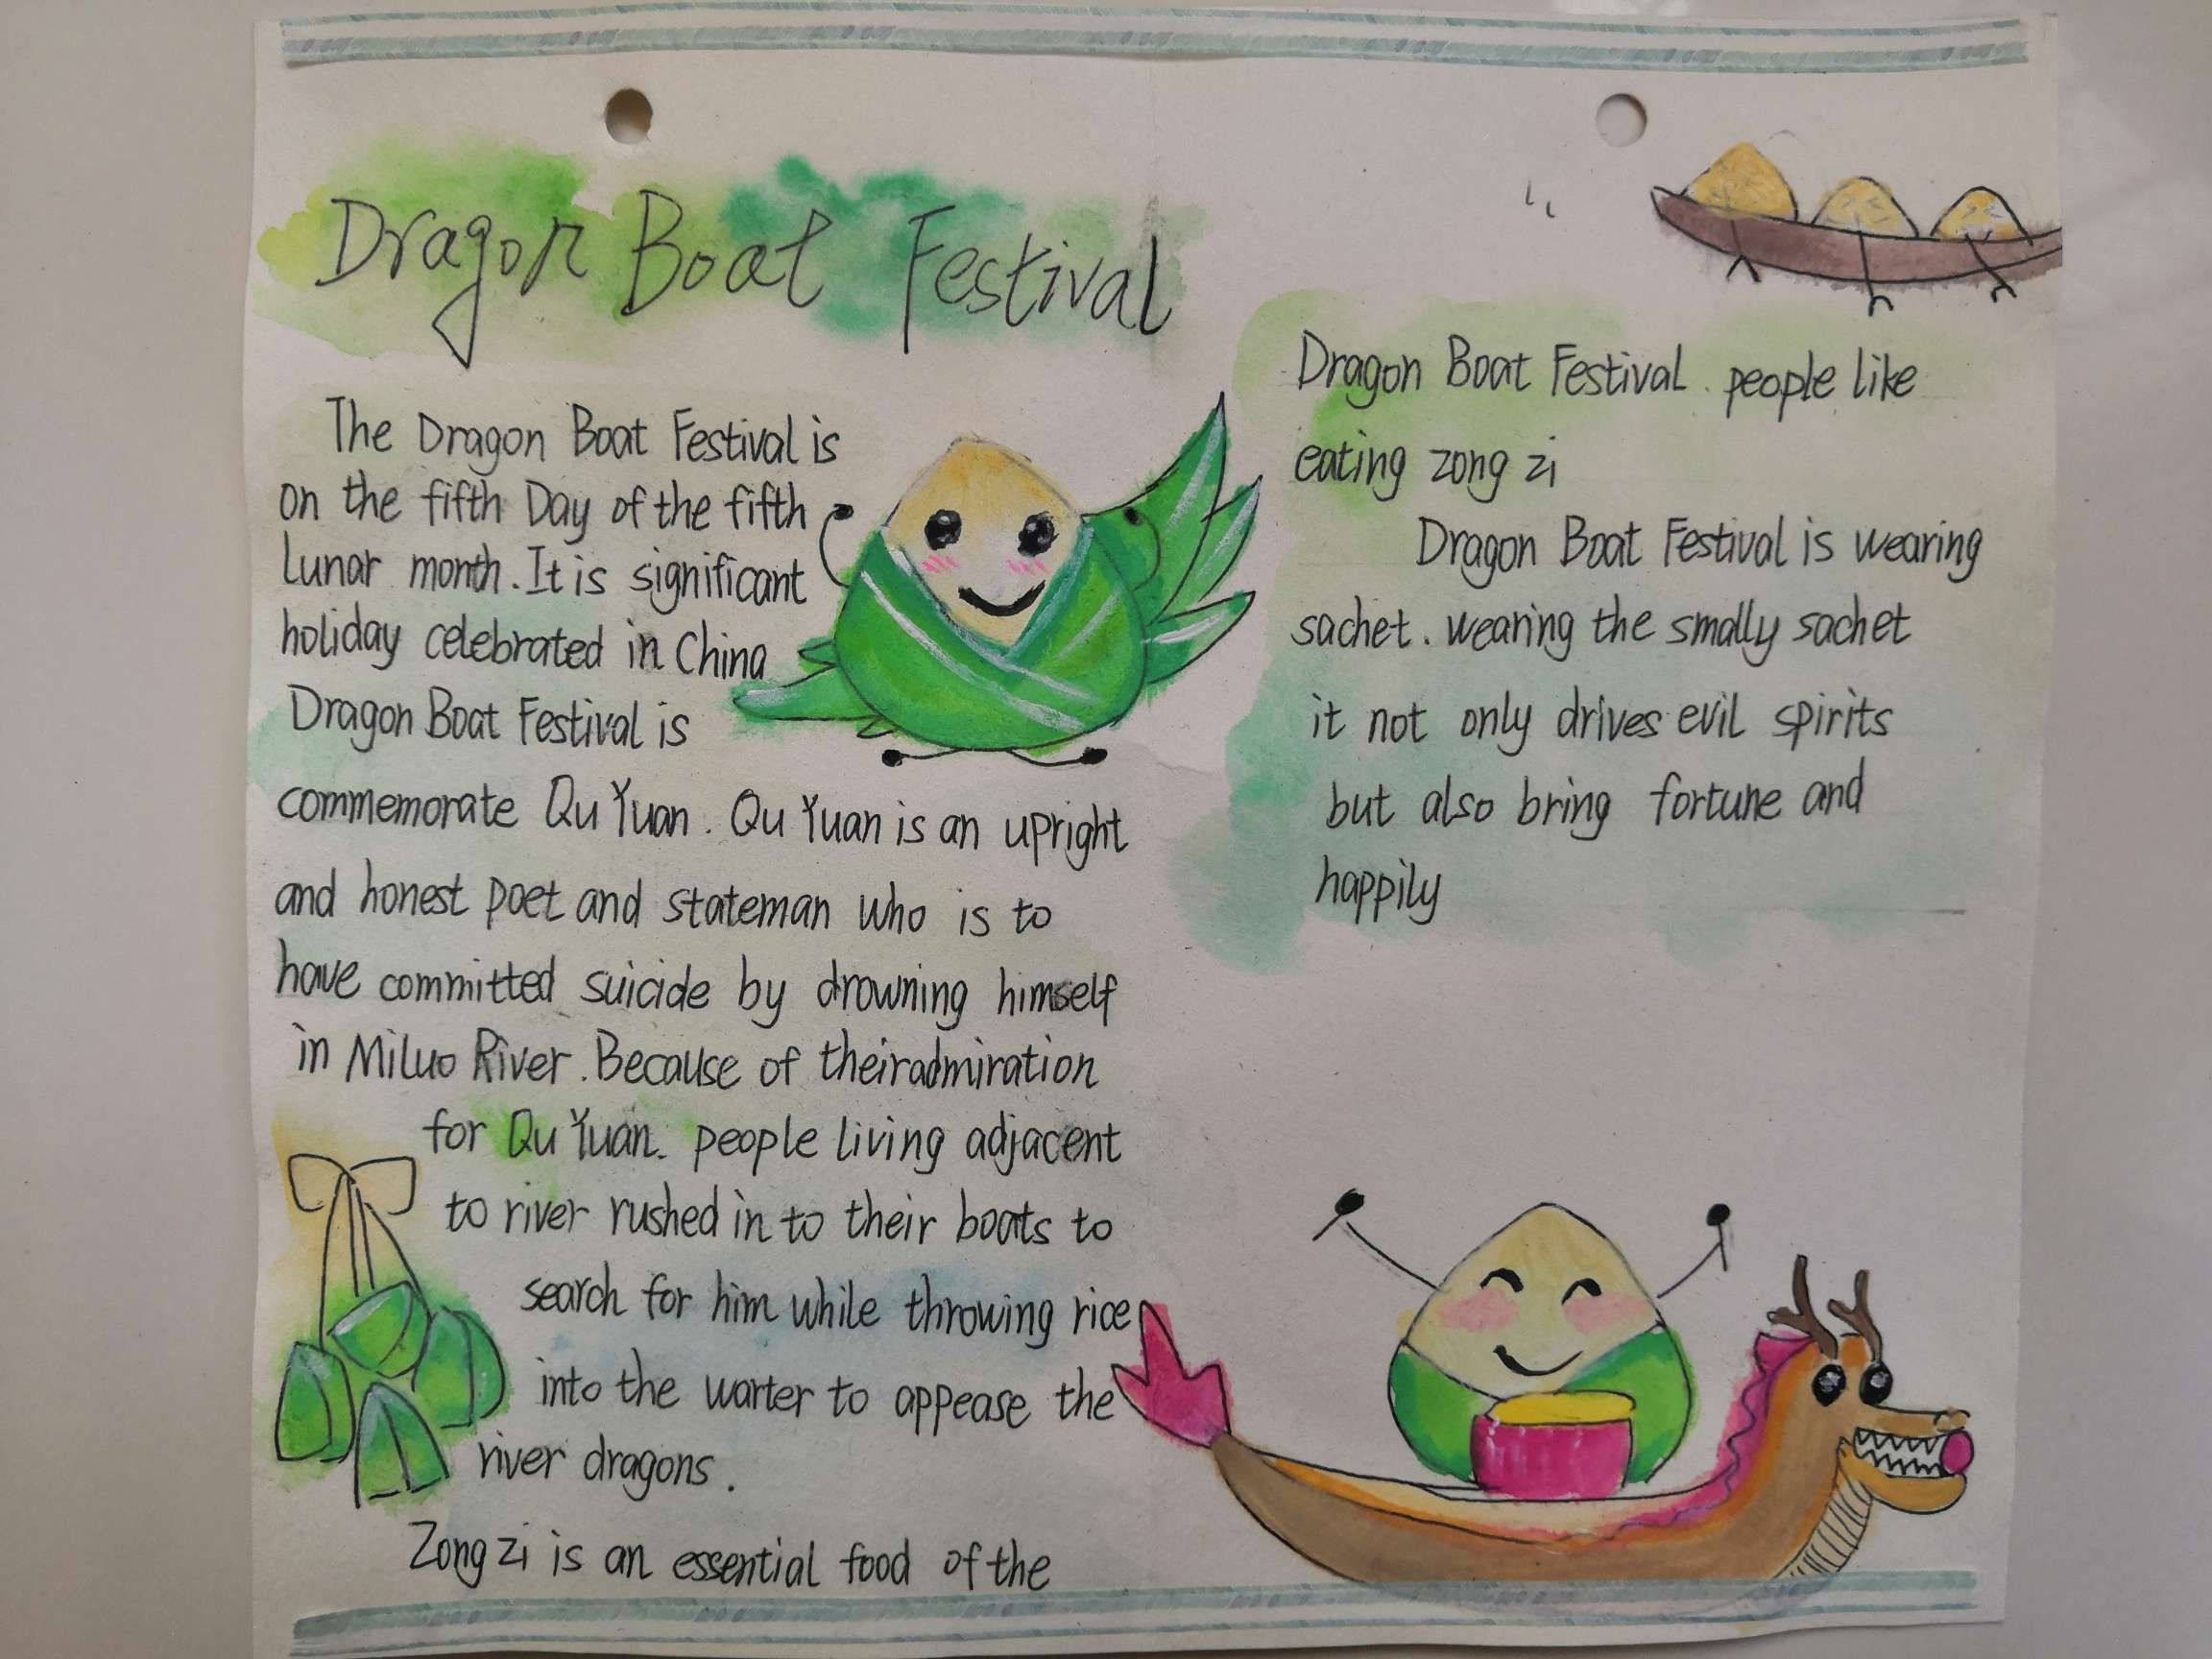 Dragon Boat Festival
The Dragon Boat Festival is
on the fifth Day of the fifth
Lunar month. It is significant
holiday celebrated in China
Dragon Boat Festival is
commemorate Qu Yuan. Qu Yuan is an upright
and honest poet and stateman who is to
have committed suicide by drowning himself
in Miluo River. Because of theiradmiration
for Qu Yuan. people living adjacent
to river rushed in to their boats to
search for him while throwing rice
into the warter to appease the
river dragons.
Zong zi is an essential food of the
Dragon Boat Festival. people like
eating zong zi
Dragon Boat Festival is wearing
sachet. wearing the smally sachet
it not only drives evil spirits
but also bring fortune and
happily